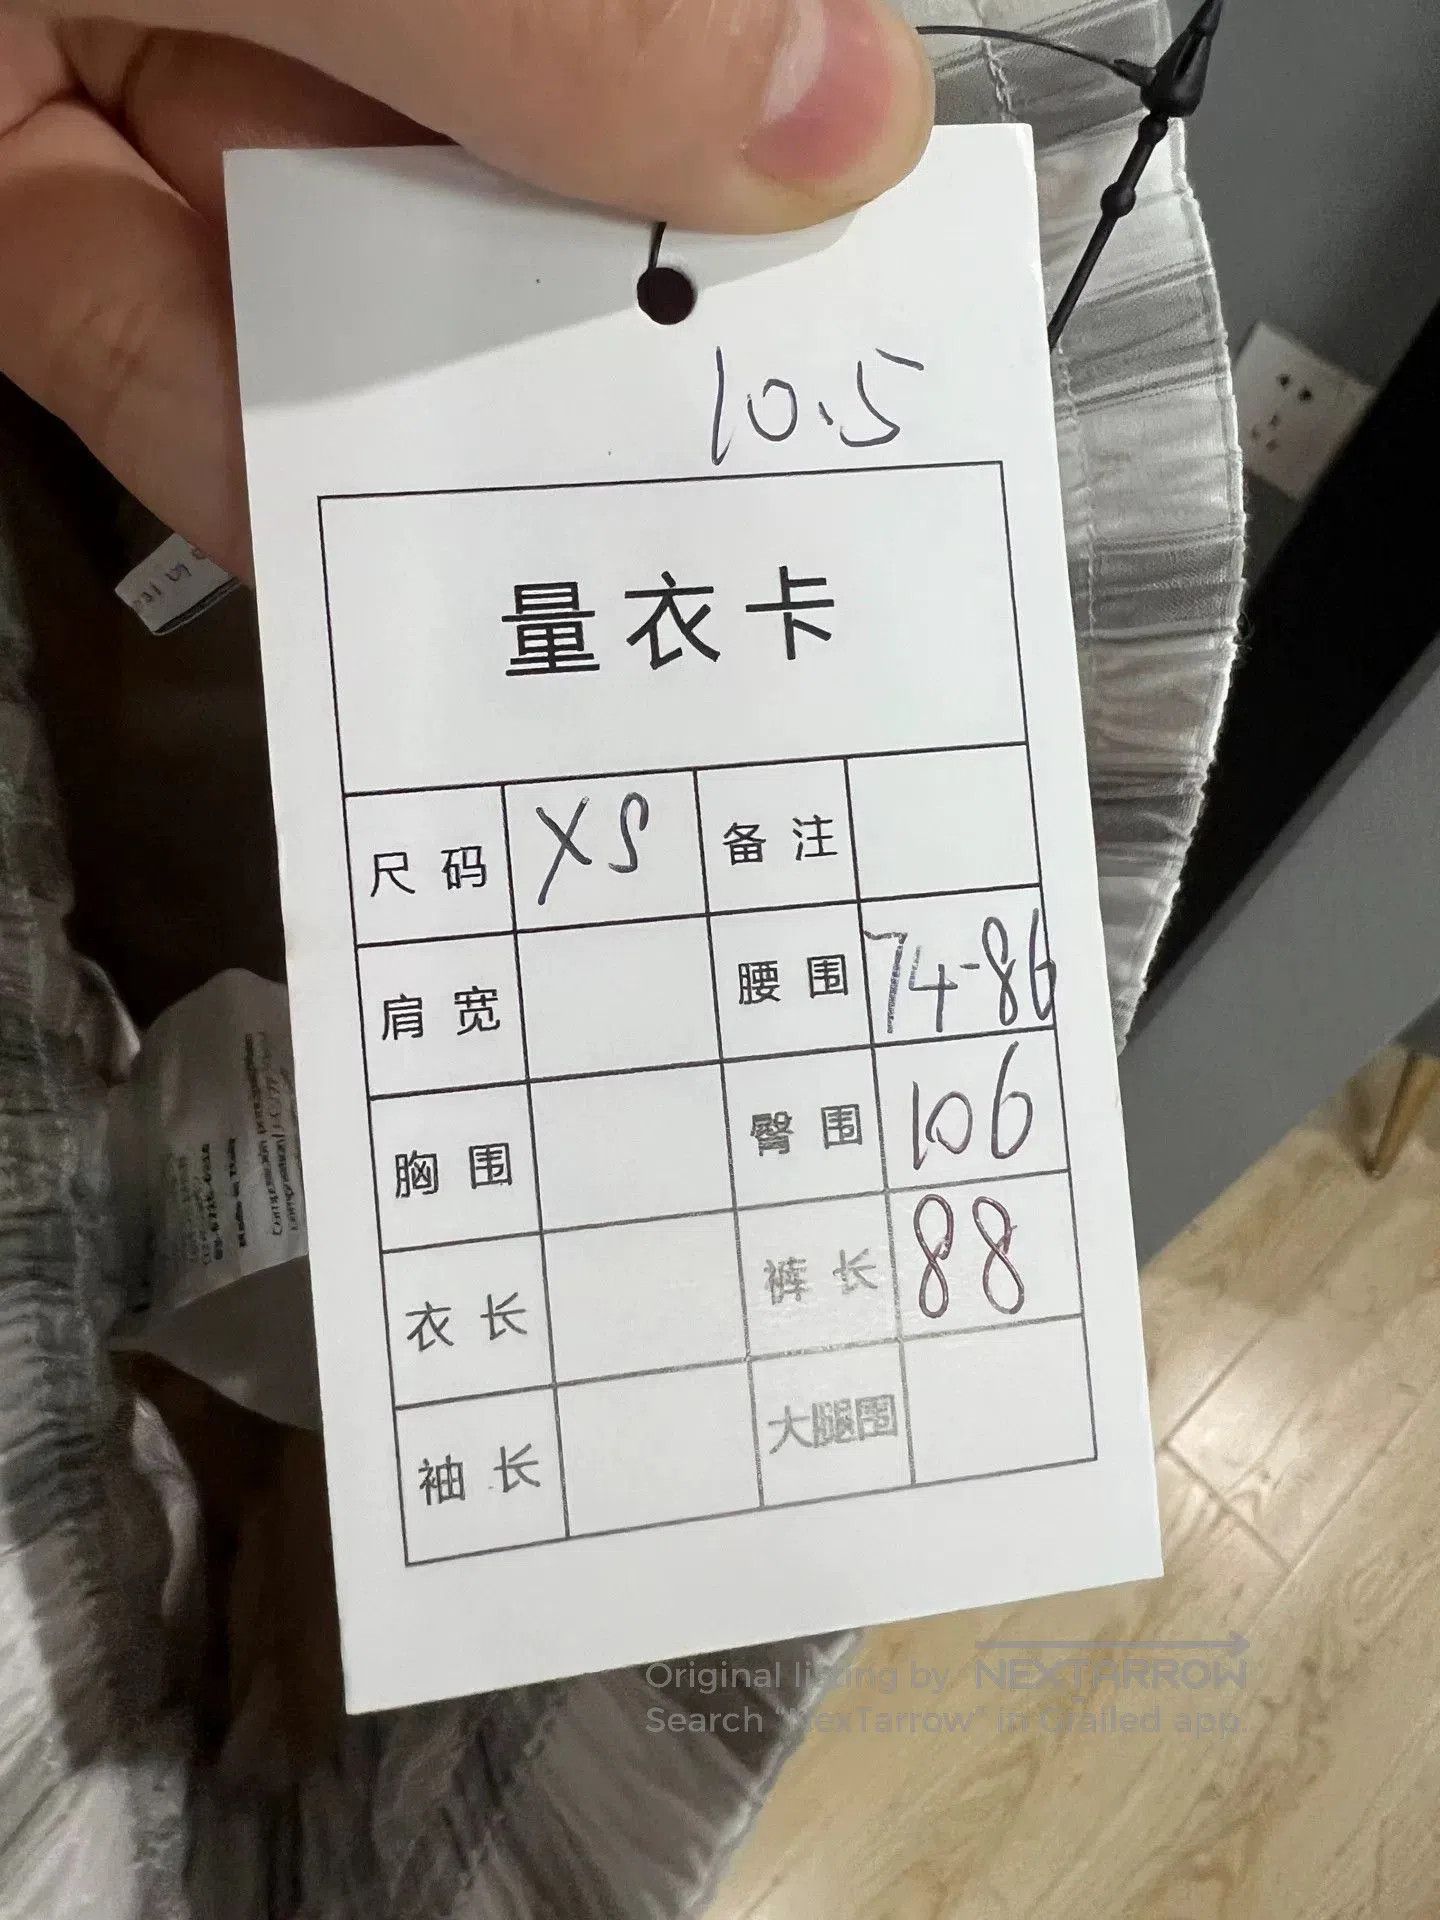 10.5
量衣卡
尺码 XS 备注
肩宽 腰围 74-86
胸围 臀围 106
衣长 裤长 88
袖长 大腿围
Original listing by NEXTARROW
Search "NexTarrow" in Grailed app.